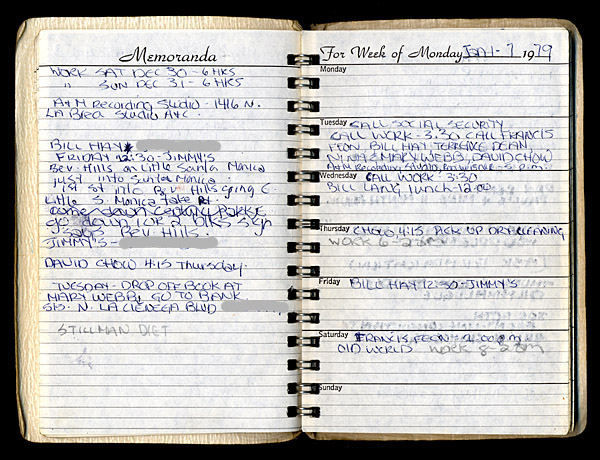 Memoranda
WORK SAT DEC 30 - 6 HRS
" SUN DEC 31 - 6 HRS
A+M Recording Studio - 1416 N.
LA Brea Studio A+C.
BILL HAY
FRIDAY 12:30 - JIMMY'S
Bev. Hills on Little Santa Monica
just into Santa Monica.
1st St into Bev Hills going E.
Little S. Monica take Rt.
come down Century Park E
go down 1 or 2 blks sign
says Bev Hills.
JIMMY'S -
DAVID CHOW 4:15 Thursday.
TUESDAY - DROP OFF BOOK AT
MARY WEBB, GO TO BANK.
N. LA CIENEGA BLVD
STILLMAN DIET
For Week of Monday Jan 1 - 7 1979
Monday
Tuesday CALL SOCIAL SECURITY
CALL WORK - 3:30 CALL FRANCIS
FEON BILL HAY TERRENCE DEAN,
NINA & MARY WEBB, DAVID CHOW
A+M Recording Studio, 5 p.m.
Wednesday CALL WORK - 3:30
BILL LANG, lunch - 12:00
Thursday CHOW 4:15 PICK UP DRY CLEANING
WORK 6 - 2 am
Friday BILL HAY 12:30 - JIMMY'S
Saturday FRANCIS, FEON - 4:00 pm
OLD WORLD WORK 8 - 2 am
Sunday